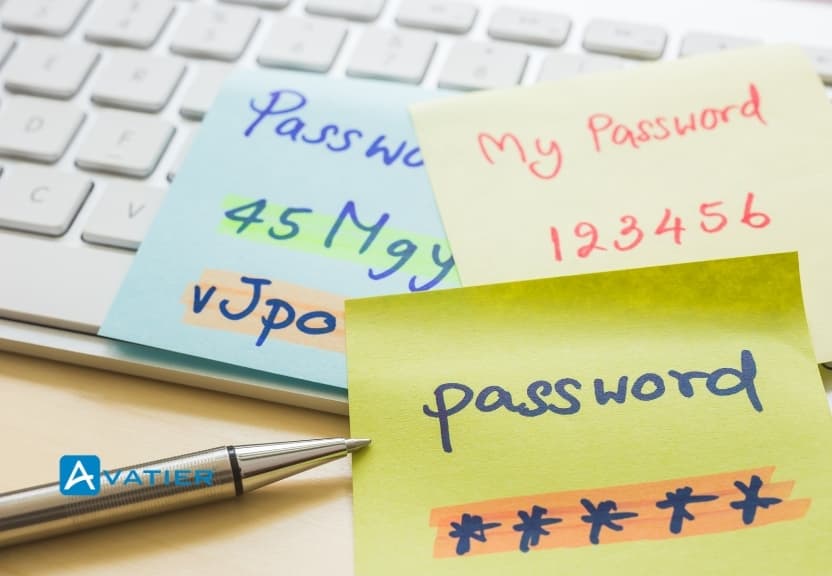 Passwo
45 Mgy
vJpo
My Password
123456
password
*****
AVATIER
D
F
C
V